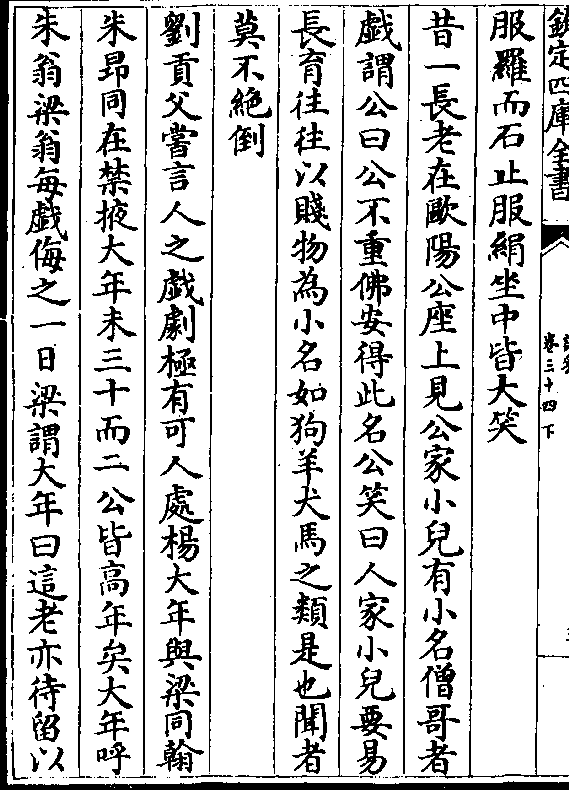 欽定四庫全書
卷三十四下
服羅而石止服絹坐中皆大笑
昔一長老在歐陽公座上見公家小兒有小名僧哥者
戲謂公曰公不重佛安得此名公笑曰人家小兒要易
長育往往以賤物為小名如狗羊犬馬之類是也聞者
莫不絶倒
劉貢父嘗言人之戲劇極有可人處楊大年與梁同翰
朱昂同在禁掖大年未三十而二公皆高年矣大年呼
朱翁梁翁每戲侮之一日梁謂大年曰這老亦待留以